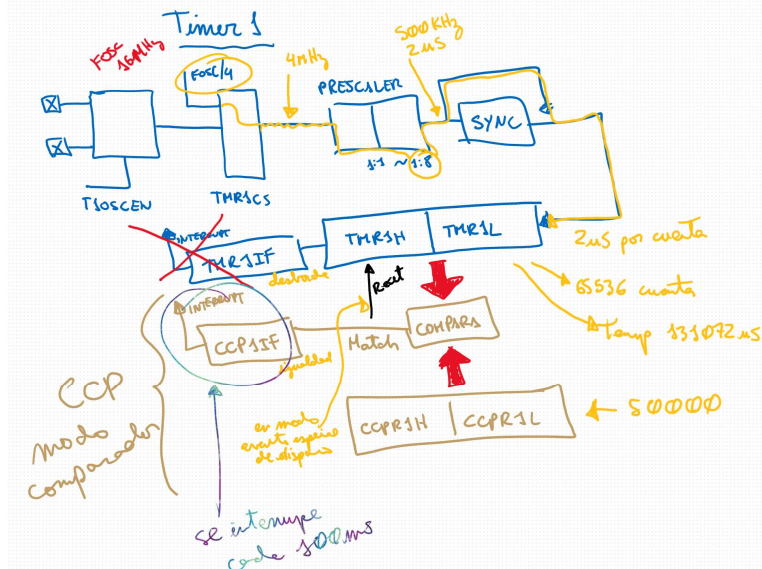 Timer 1
FOSC
16MHz
FOSC/4
4MHz
500KHz
2uS
PRESCALER
SYNC
1:1 ~ 1:8
T1OSCEN
TMR1CS
INTERRUPT
TMR1IF
desborde
TMR1H
TMR1L
2uS por cuenta
65536 cuentas
Temp 131072uS
Reset
INTERRUPT
CCP1IF
igualdad
Match
COMP1R1
CCP
modo
comparador
en modo
evento especial
de disparo
CCPR1H
CCPR1L
50000
se interrumpe
cada 100ms